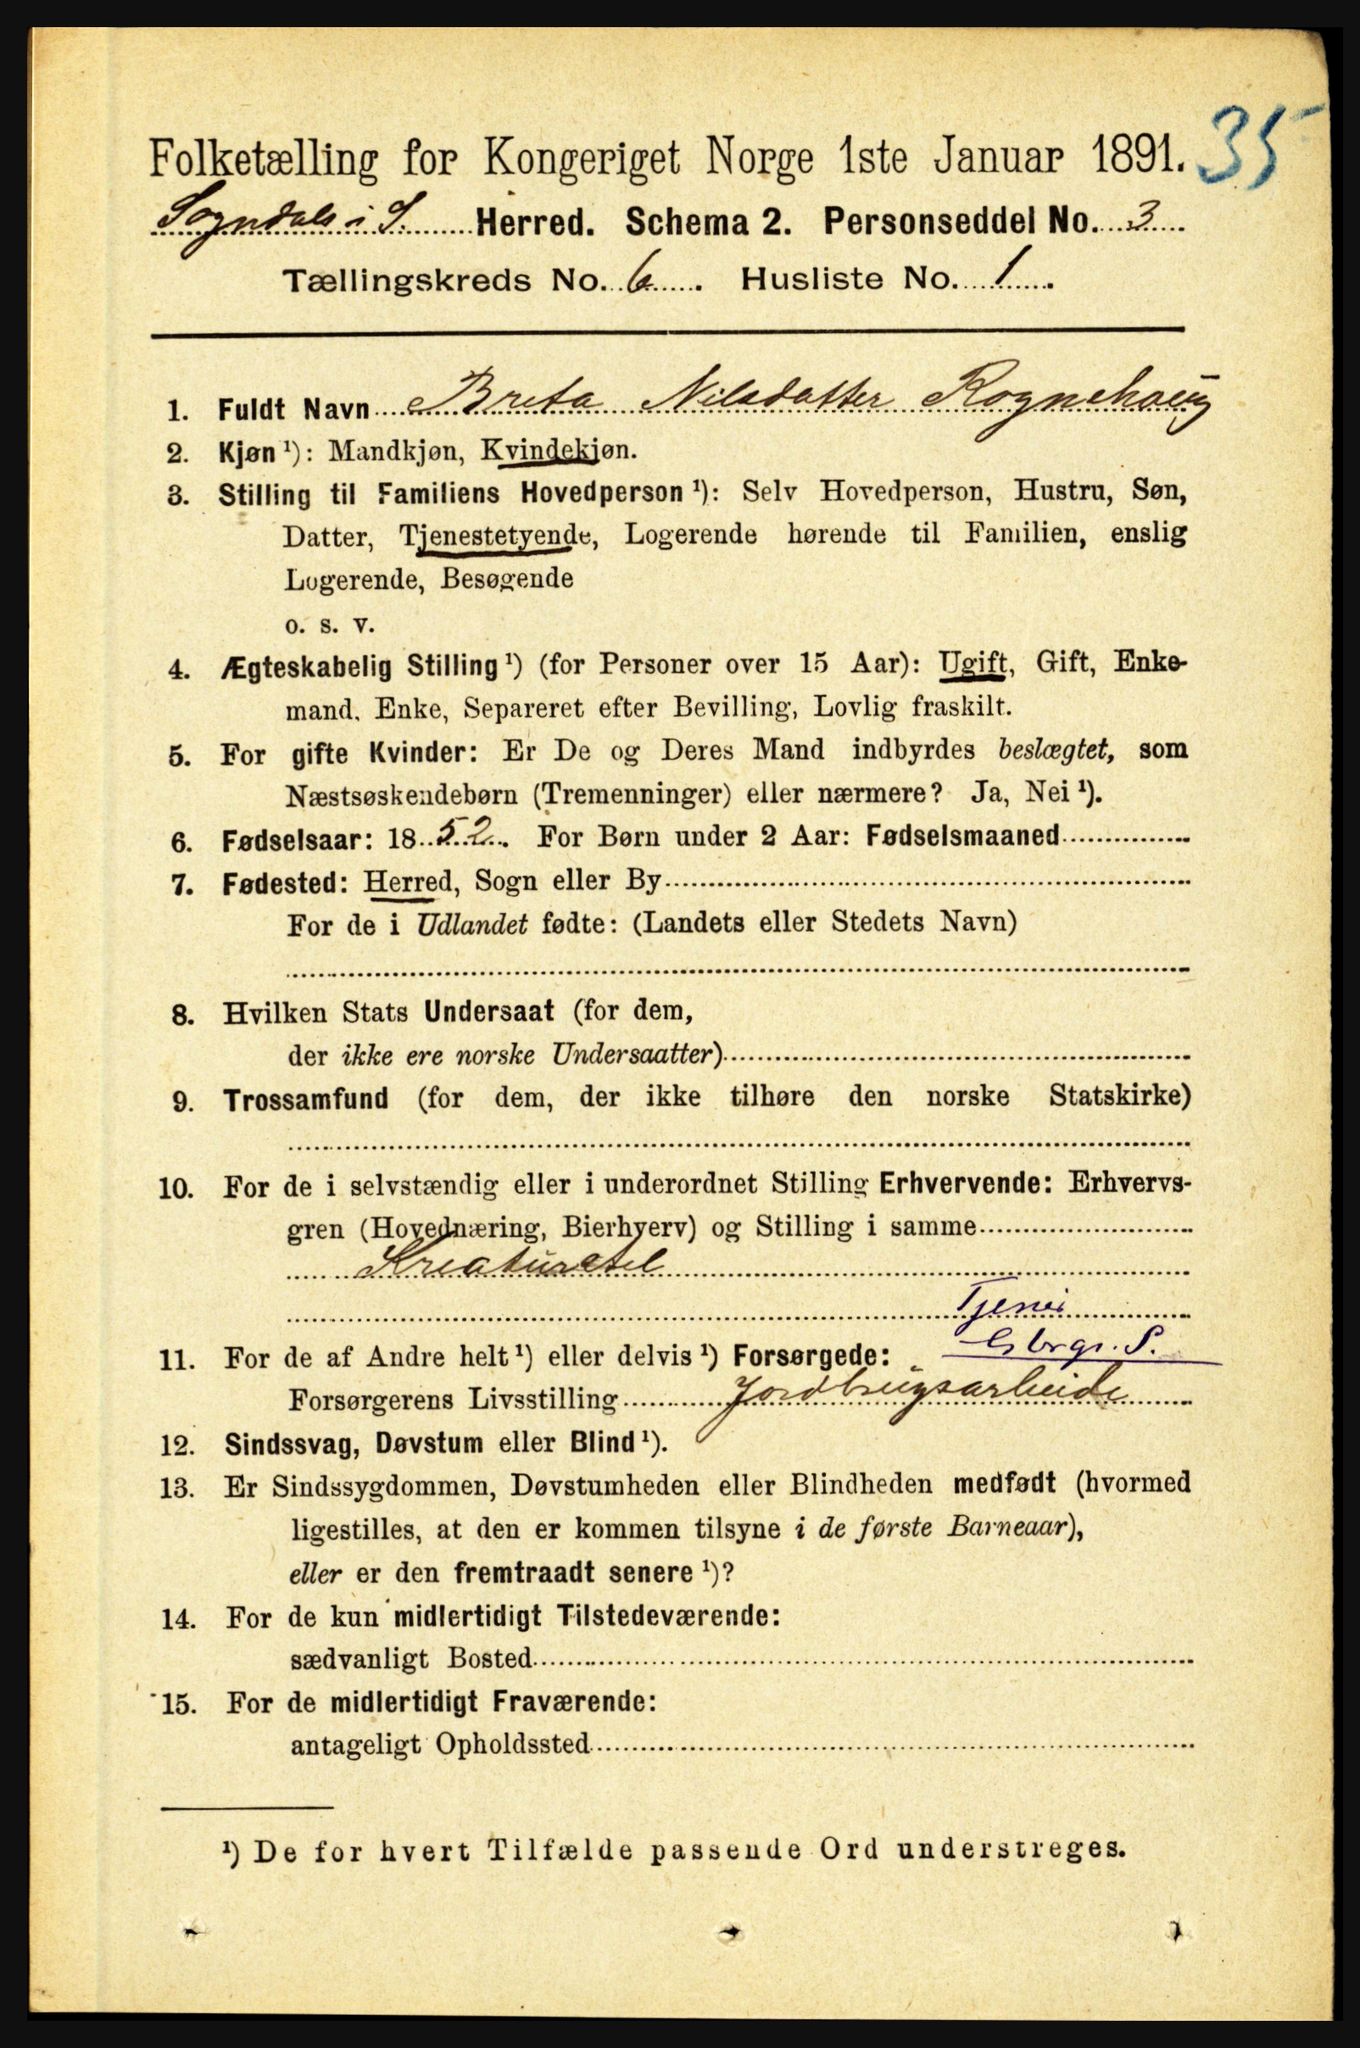 35
Folketælling for Kongeriget Norge 1ste Januar 1891.
Sogndals i S. Herred. Schema 2. Personseddel No. 3
Tællingskreds No. 6. Husliste No. 1.
1. Fuldt Navn Breta Nilsdatter Rognehaug
2. Kjøn¹): Mandkjøn, Kvindekjøn.
3. Stilling til Familiens Hovedperson¹): Selv Hovedperson, Hustru, Søn,
Datter, Tjenestetyende, Logerende hørende til Familien, enslig
Logerende, Besøgende
o. s. v.
4. Ægteskabelig Stilling¹) (for Personer over 15 Aar): Ugift, Gift, Enke-
mand, Enke, Separeret efter Bevilling, Lovlig fraskilt.
5. For gifte Kvinder: Er De og Deres Mand indbyrdes beslægtet, som
Næstsøskendebørn (Tremenninger) eller nærmere? Ja, Nei¹).
6. Fødselsaar: 1852. For Børn under 2 Aar: Fødselsmaaned
7. Fødested: Herred, Sogn eller By
For de i Udlandet fødte: (Landets eller Stedets Navn)
8. Hvilken Stats Undersaat (for dem,
der ikke ere norske Undersaatter)
9. Trossamfund (for dem, der ikke tilhøre den norske Statskirke)
10. For de i selvstændig eller i underordnet Stilling Erhvervende: Erhvervs-
gren (Hovednæring, Bierhverv) og Stilling i samme
Kreaturstel
Tjener
Gbrgr. S.
11. For de af Andre helt¹) eller delvis¹) Forsørgede:
Forsørgerens Livsstilling Jordbrugsarbeide
12. Sindssvag, Døvstum eller Blind¹).
13. Er Sindssygdommen, Døvstumheden eller Blindheden medfødt (hvormed
ligestilles, at den er kommen tilsyne i de første Barneaar),
eller er den fremtraadt senere¹)?
14. For de kun midlertidigt Tilstedeværende:
sædvanligt Bosted
15. For de midlertidigt Fraværende:
antageligt Opholdssted
¹) De for hvert Tilfælde passende Ord understreges.